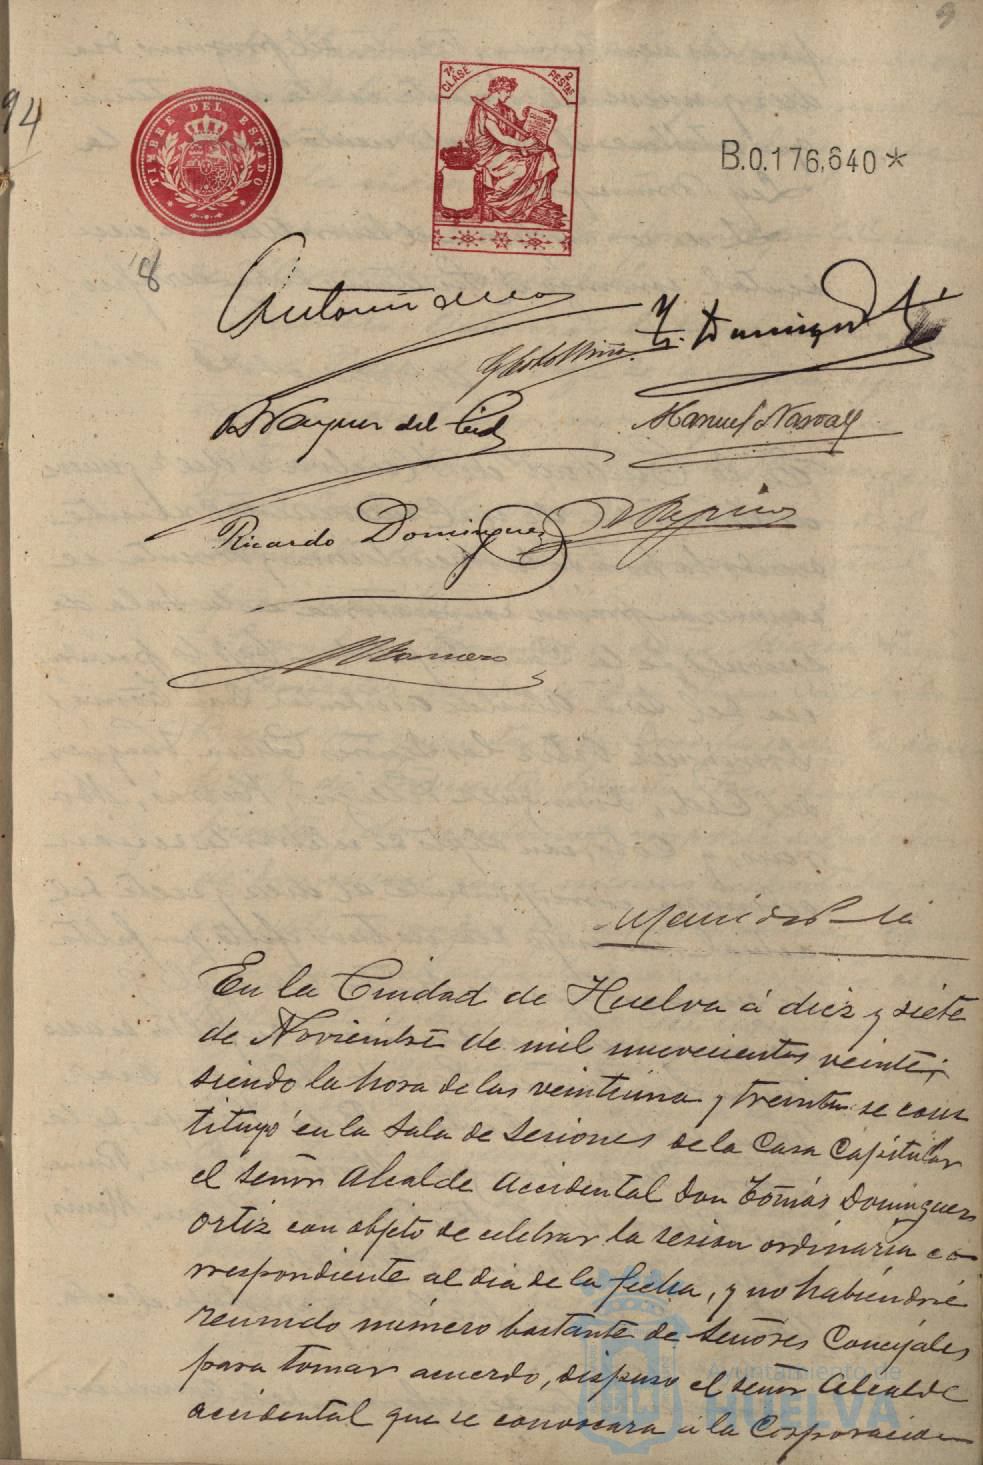 9
94
TIMBRE DEL ESTADO
7ª CLASE 2 PESTAS
B.0.176,640*
8
Antonio
T. Dominguez
Vazquez del Cid
Manuel Narvaez
Ricardo Dominguez
Romero
En la Ciudad de Huelva á diez y siete
de Noviembre de mil nuevecientos veinte,
siendo la hora de las veintiuna y treinta se cons
tituyó en la Sala de Sesiones de la Casa Capitular
el señor Alcalde accidental Don Tomás Dominguez
Ortiz con objeto de celebrar la sesion ordinaria co-
rrespondiente al dia de la fecha, y no habiendose
reunido número bastante de Señores Concejales
para tomar acuerdo, dispuso el señor Alcalde
accidental que se convocara á la Corporacion
Ayuntamiento de
HUELVA